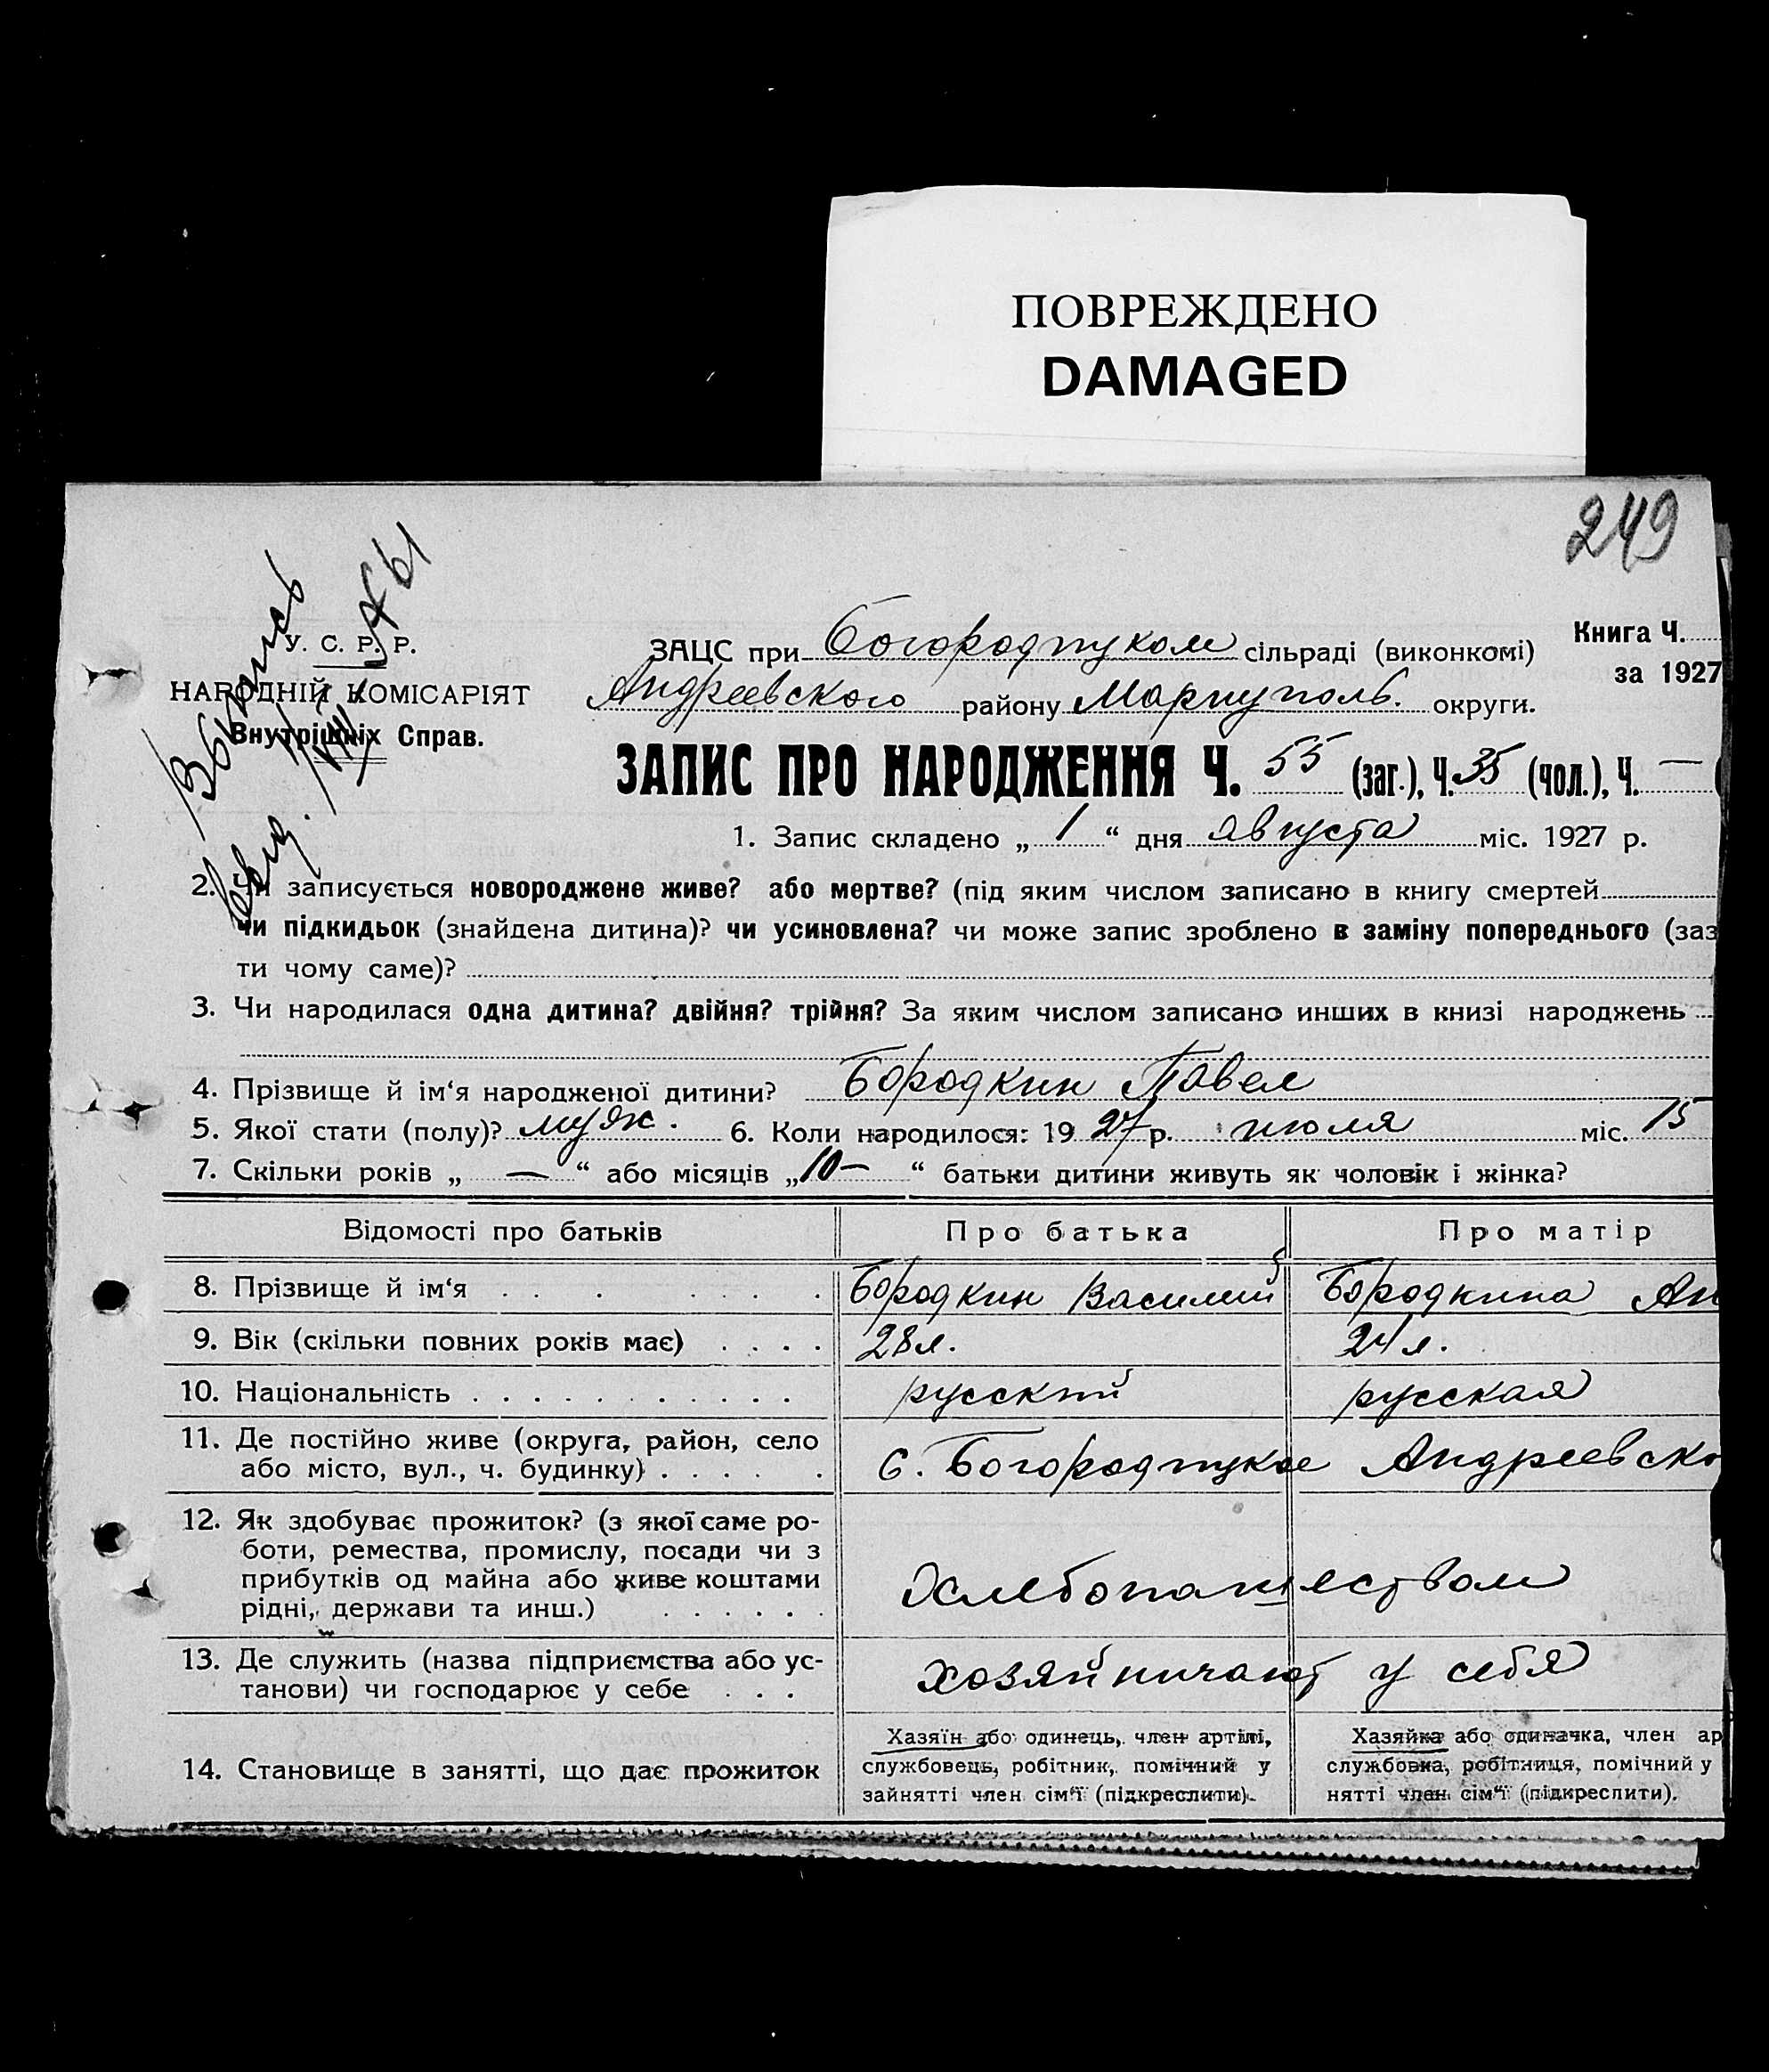 ПОВРЕЖДЕНО
DAMAGED
249
У. С. Р. Р.
НАРОДНІЙ КОМІСАРІЯТ
Внутрішніх Справ.
Выпись
ЗАЦС при Богородицком сільраді (виконкомі)
Книга Ч.
за 1927
Андреевского району Мариуполь. округи.
ЗАПИС ПРО НАРОДЖЕННЯ Ч. 55 (заг.), Ч. 35 (чол.), Ч. — (
1. Запис складено „ 1 “ дня августа міс. 1927 р.
2. Чи записується новороджене живе? або мертве? (під яким числом записано в книгу смертей
чи підкидьок (знайдена дитина)? чи усиновлена? чи може запис зроблено в заміну попереднього (заз
ти чому саме)?
3. Чи народилася одна дитина? двійня? трійня? За яким числом записано инших в книзі народжень
4. Прізвище й ім‘я народженої дитини? Бородкин Павел
5. Якої стати (полу)? муж. 6. Коли народилося: 1927 р. июля міс. 15
7. Скільки років „ — “ або місяців „ 10 — “ батьки дитини живуть як чоловік і жінка?
Відомості про батьків Про батька Про матір
8. Прізвище й ім‘я Бородкин Василий Бородкина Ан
9. Вік (скільки повних років має) 28 л. 24 л.
10. Національність русский русская
11. Де постійно живе (округа, район, село
або місто, вул., ч. будинку) с. Богородицкое Андреевско
12. Як здобуває прожиток? (з якої саме ро-
боти, ремества, промислу, посади чи з
прибутків од майна або живе коштами
рідні, держави та инш.)
Хлебопашеством
13. Де служить (назва підприємства або ус-
танови) чи господарює у себе
хозяйничают у себя
14. Становище в занятті, що дає прожиток
Хазяїн або одинець, член артілі,
службовець, робітник, помічний у
зайнятті член сім‘ї (підкреслити).
Хазяйка або одиначка, член ар
службовка, робітниця, помічний у
нятті член сім‘ї (підкреслити).